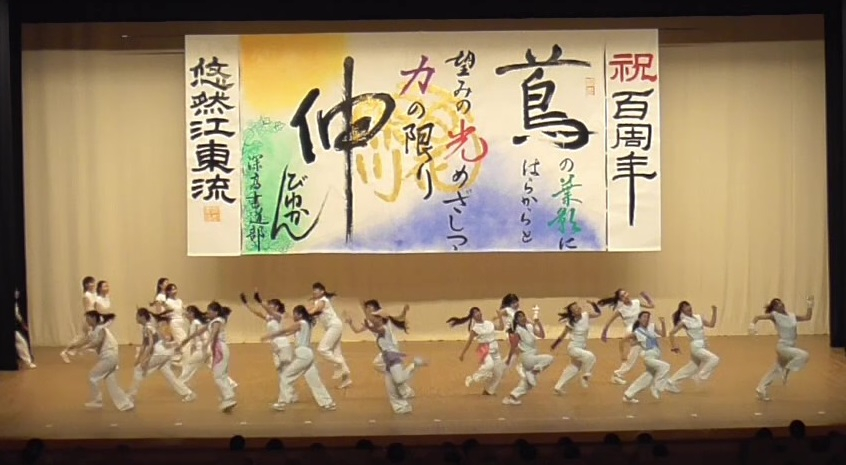 祝百周年
蔦の葉影に
はらからと
望みの光めざしつゝ
力の限り
伸びゆかん
深高書道部
悠然江東流